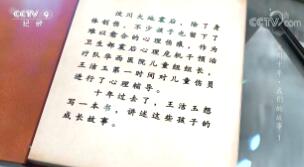 CCTV 9
纪录
汶川大地震后，除了身
体创伤，不少孩子也留下了
难以愈合的心理伤痕。作为
卫生部震后心理危机干预医
疗队华西医院儿童组组长，
王洁玉第一时间对儿童伤员
进行了心理辅导。
十年过去了，王洁玉想
写一本书，讲述这些孩子的
成长故事。
我们的故事